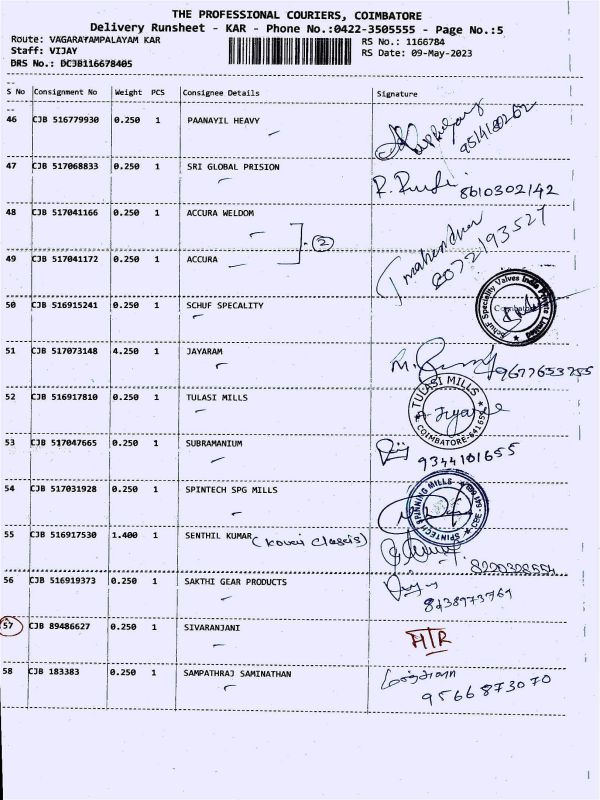 THE PROFESSIONAL COURIERS, COIMBATORE
Delivery Runsheet - KAR - Phone No.:0422-3505555 - Page No.:5
Route: VAGARAYAMPALAYAM KAR RS No.: 1166784
Staff: VIJAY RS Date: 09-May-2023
DRS No.: DCJB116678405
S No Consignment No Weight PCS Consignee Details Signature
46 CJB 516779930 0.250 1 PAANAYIL HEAVY
47 CJB 517068833 0.250 1 SRI GLOBAL PRISION 8610302142
48 CJB 517041166 0.250 1 ACCURA WELDOM
2
49 CJB 517041172 0.250 1 ACCURA mahendran 8072193527
50 CJB 516915241 0.250 1 SCHUF SPECALITY Schuf Speciality Valves India Private Limited Coimbatore
51 CJB 517073148 4.250 1 JAYARAM 9677653755
52 CJB 516917810 0.250 1 TULASI MILLS TULASI MILLS COIMBATORE-641659
53 CJB 517047665 0.250 1 SUBRAMANIUM 9344101655
54 CJB 517031928 0.250 1 SPINTECH SPG MILLS SPINTECH SPINNING MILLS
55 CJB 516917530 1.400 1 SENTHIL KUMAR
56 CJB 516919373 0.250 1 SAKTHI GEAR PRODUCTS 8438973769
57 CJB 89486627 0.250 1 SIVARANJANI HTR
58 CJB 183383 0.250 1 SAMPATHRAJ SAMINATHAN 9566873070